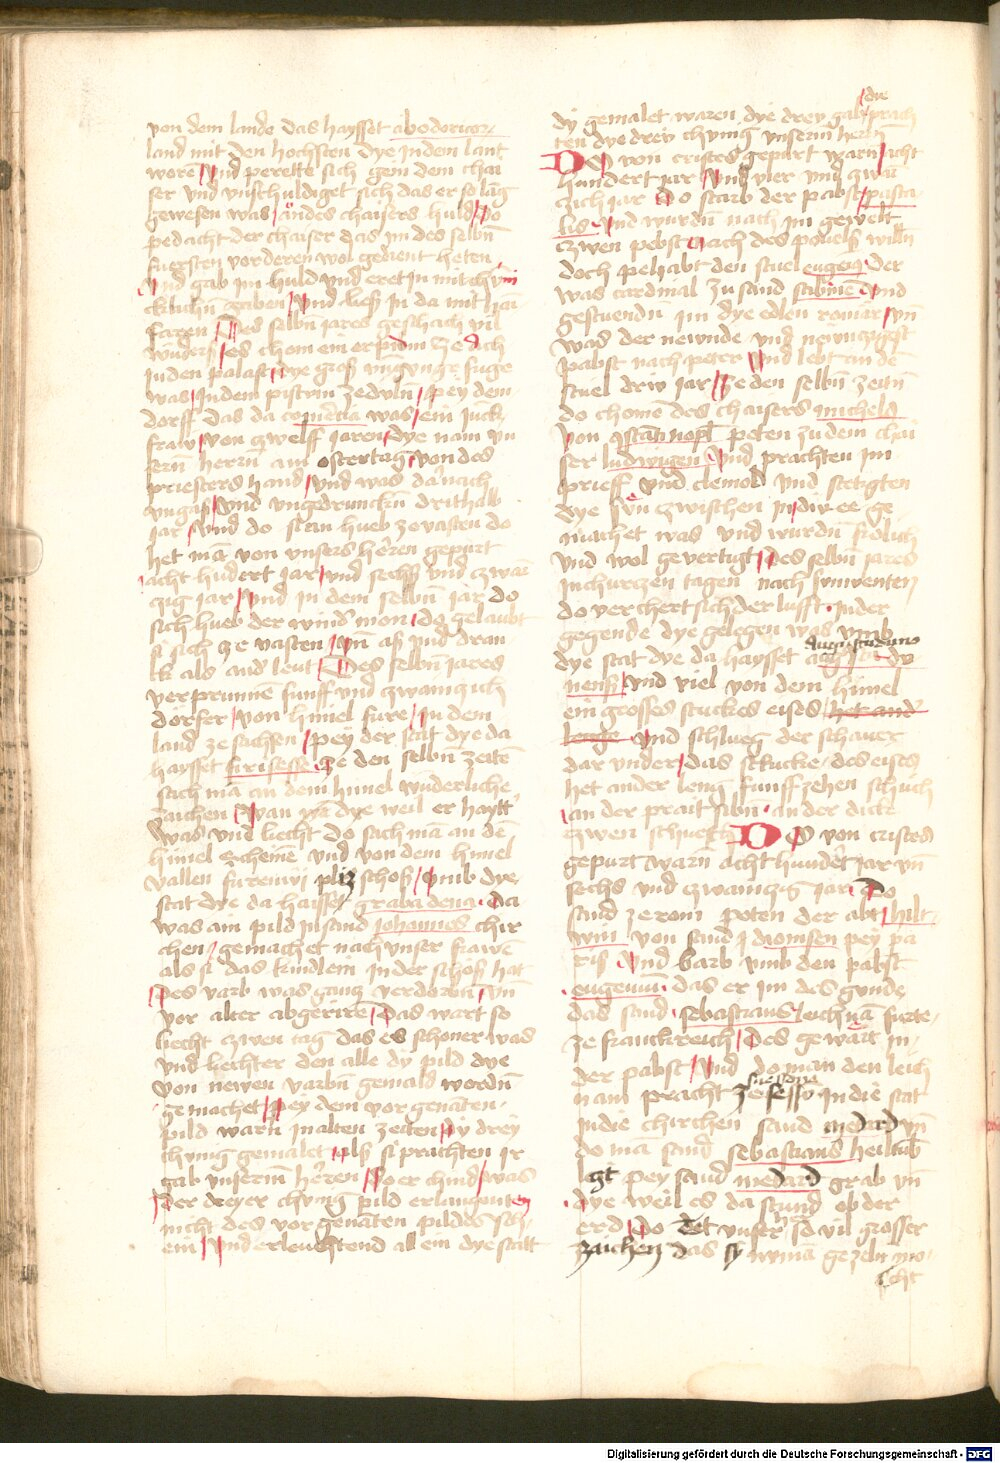 von dem lande das haysset abodoriar
land mit den hochsten dye in dem lant
wore Und perette sich gem dem chai
ser und unschuldiget sich das er so lang
gewesen was an des chaisers huld Do
pedacht der chaiser das im des selbñ
fuersten vorderen wol gedient heten
Und gab im huld und eret in mit
gaben Und liess in da mit haī
faren Des selbñ jares geschach vil
wunders es chom ein erpidm ze ach
in den palast dye gross
was in dem pistum pey dem
dorff das da was ein juck
fraw von zwelff jaren dye nam vn
sern herrñ am ostertag von des
priesters hand und was dar nach
ungass und ungedrunckñ drithalb
jar Und do si an hueb ze vasten do
het mā von unsers herren gepurt
acht hūdert jar und sechss und zwai
zig jar Und in dem selbñ jar do
sich hueb der wind mon do gelaubt
si sich ze vasten Un ass und dran
k als and leut Des selbñ jares
verprunnē funff und zwainzick
dörfer von himel fure in dem
land ze sachsen pey der stat dye da
haysset firisesse ze den selbñ zeitē
sach mā an dem himel wunderliche
zaichen Wan dye weil er haytt
was und liecht do sach mā an dē
himel scheinē und von dem himel
vallen fureinn pliz schoss Umb dye
stat dye da haisset grabadena Da
was ain pild in sand johannes chir
chen gemachet nach unser frawē
als si das kindlein in der schoss hat
Des varb was ganz verdorbñ vn
vor alter abgerirē Das wart so
liecht zwen tag das es schoner was
und liechter den alle dy pild dye
von newen varbñ gemald wordñ
gemachet Pey dem vor genāten
pild warñ in alten zeiten dy drey
chunig gemalet als si prachten ir
gab unserm herren Do er chind was
Der dreyer chunig pild erlaugniten
nicht des vor genāten pildes sch
ein Und erleuchtend al ein dye statt
die
dy gemalet waren dye drey gab prach
ten dye drey chunig unserm herrñ
Do von cristes gepurt warn acht
hundert jar Und vier und zwai
zick jar Do starb der pabst pasca
lis Und wurdñ nach im gewelt
zwen pebst nach des povels willñ
doch pehabt den stuel eugen Der
was cardinal zu sand sabinē Und
gestuendñ im dye edlen romar vn
was der newnde und newnzigist
pabst nach peter Und lebt an dē
stuel drew jar Ze den selbñ zeitñ
do chomē des chaisers michels
von 9stātinopl poten zu dem chai
ser ludwigen Und prachten im
prieff und clemod und stetigten
dye sun zwischen in dye ee ge
machet was und wurdñ frolich
und wol gevertigt Des selbñ jares
in churzen tagen nach sunwenten
do verchert sich der lufft in der
gegende dye gelegen was umb
Augustuduno
dye stat dye da haysset
nenss und viel von dem himel
ein grosses stuckes eises het and
lenge Und schlueg der schauer
dar under das stucke des eises
het ander leng funffzehen schuch
an der prait sibñ an der dick
zwen schuech Do von cristes
gepurt warñ acht hundert jar vn
sechs und zwainzig jar Do
sand ze rom poten der abt hilt
win von sand dionisen pey pa
ris Und warb umb den pabst
eugenium das er im des gunde
das sand sebastians leichnā furte
ze franckreich Des gewart in
der pabst Und do man den leich
nam pracht ze sesso in die stat
in die chirchen sand medard vn
do mā sand sebastians heiltūb
legt pey sand medard grab vn
dye weil es da stund ob der
erd Do tet unser h̄ so vil grosser
zaichen das sy niemā gezeln mo
cht
Digitalisierung gefördert durch die Deutsche Forschungsgemeinschaft - DFG